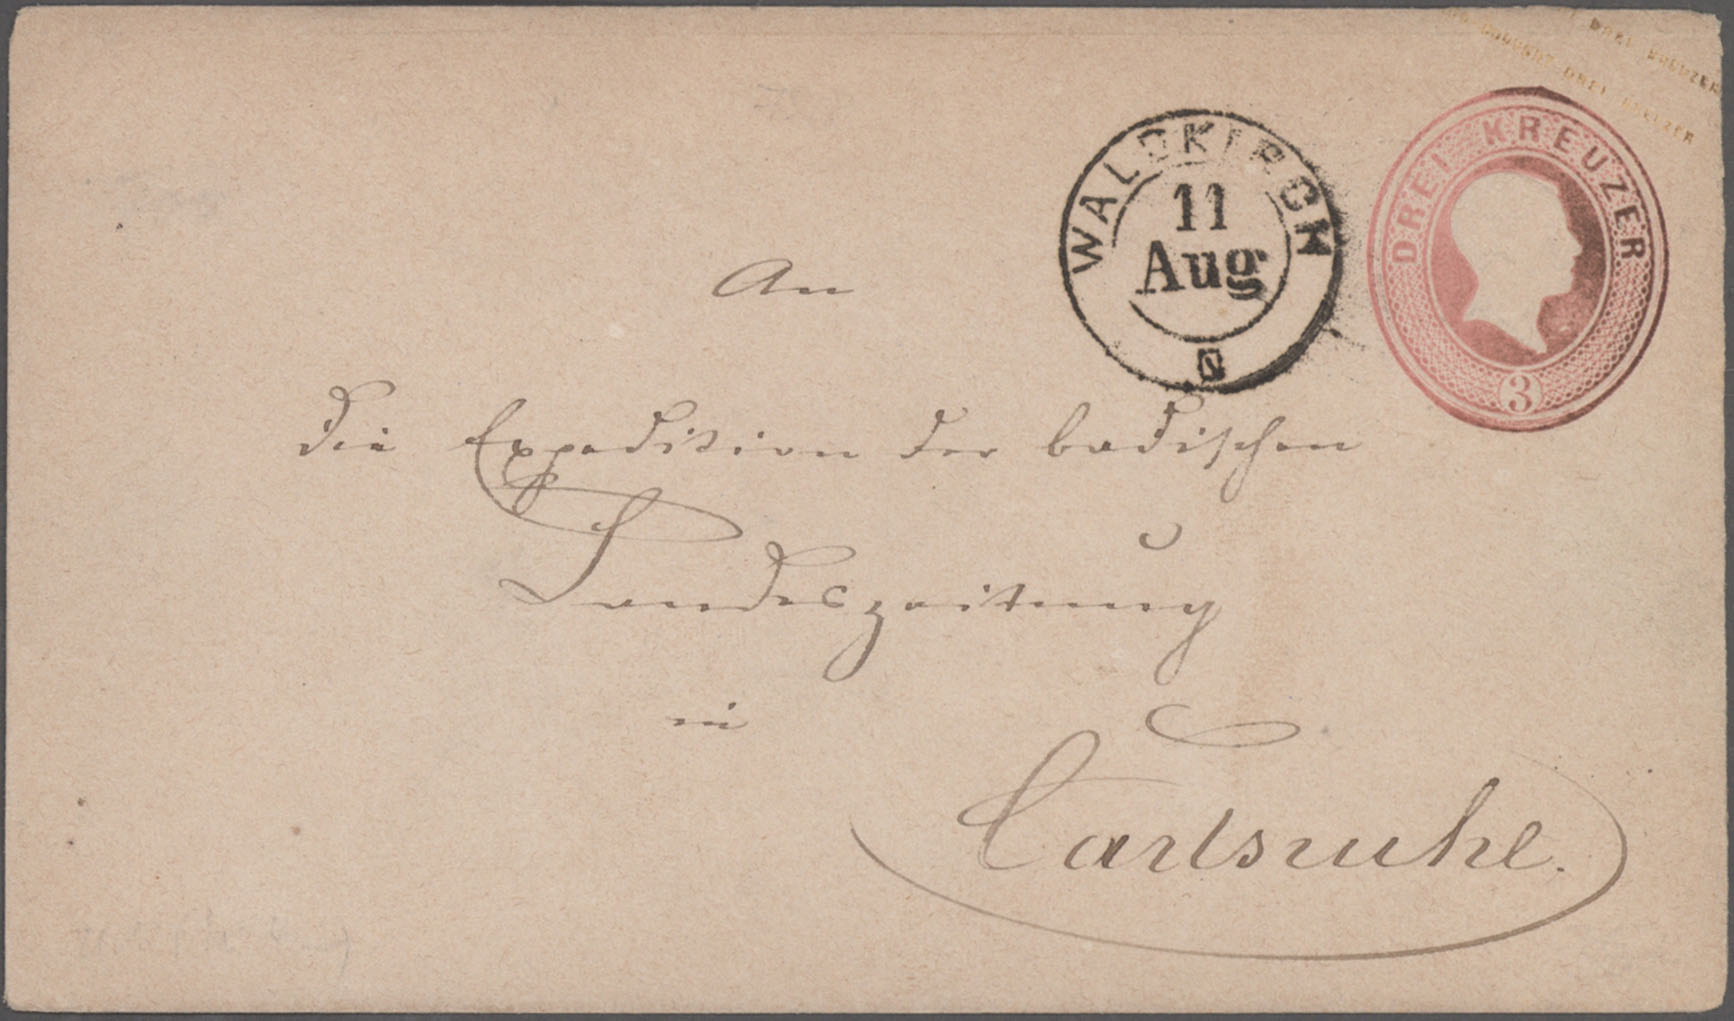 DREI KREUZER
COUVERT DREI KREUZER
DREI KREUZER
3
WALDKIRCH
11
Aug
An
die Expedition der badischen
Landeszeitung
in
Carlsruhe.